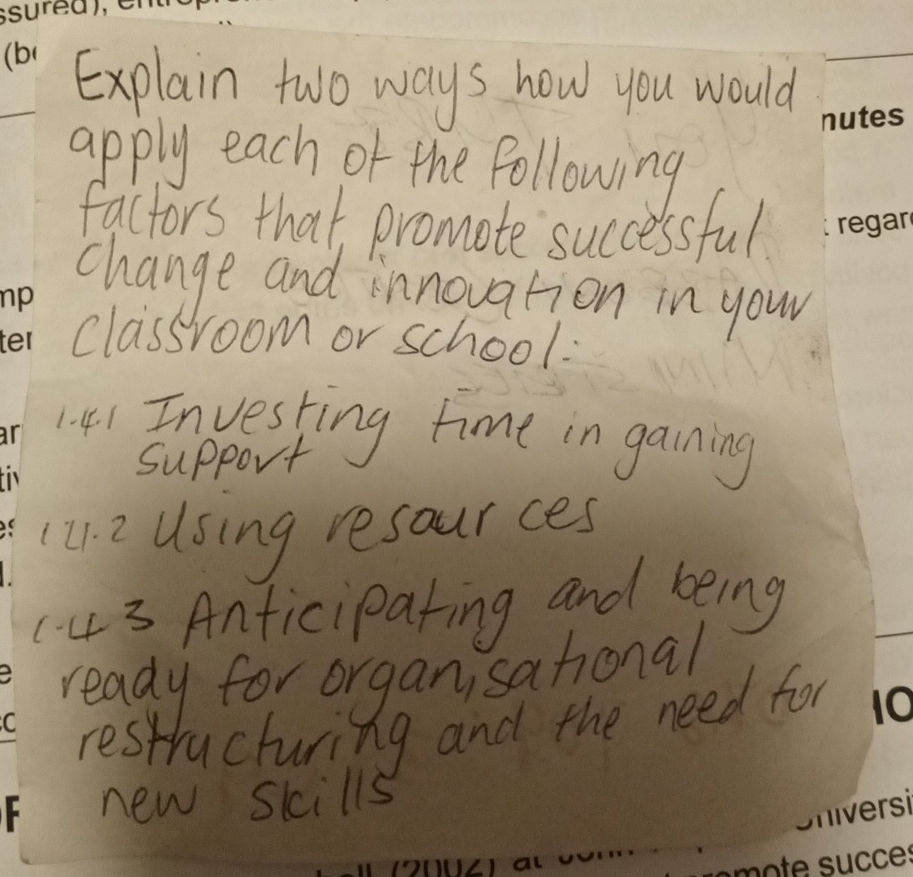 ssured),
(b
Explain two ways how you would
apply each of the following
factors that promote successful
change and innovation in your
classroom or school:
1.4.1 Investing time in gaining
support
1.4.2 Using resources
1.4.3 Anticipating and being
ready for organisational
restructuring and the need for
new skills
nutes
regar
mp
ter
ar
es
(2002) at
omote succes